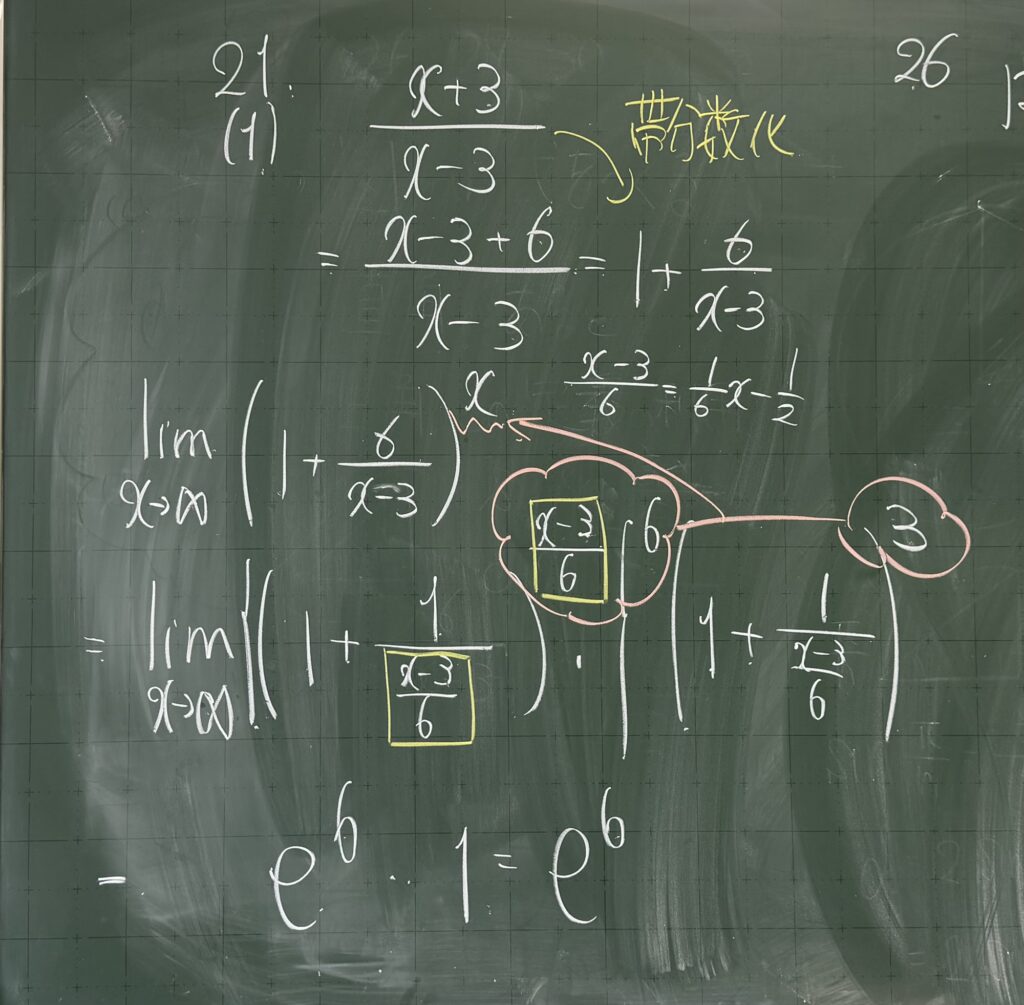 21.
(1)
x+3 / x-3 帯分数化
= x-3+6 / x-3 = 1 + 6 / x-3
x-3 / 6 = 1/6 x - 1/2
lim x→∞ ( 1 + 6 / x-3 )^x
= lim x→∞ [ ( 1 + 1 / (x-3 / 6) )^(x-3 / 6) ]^6 · ( 1 + 1 / (x-3 / 6) )^3
= e^6 · 1 = e^6
26